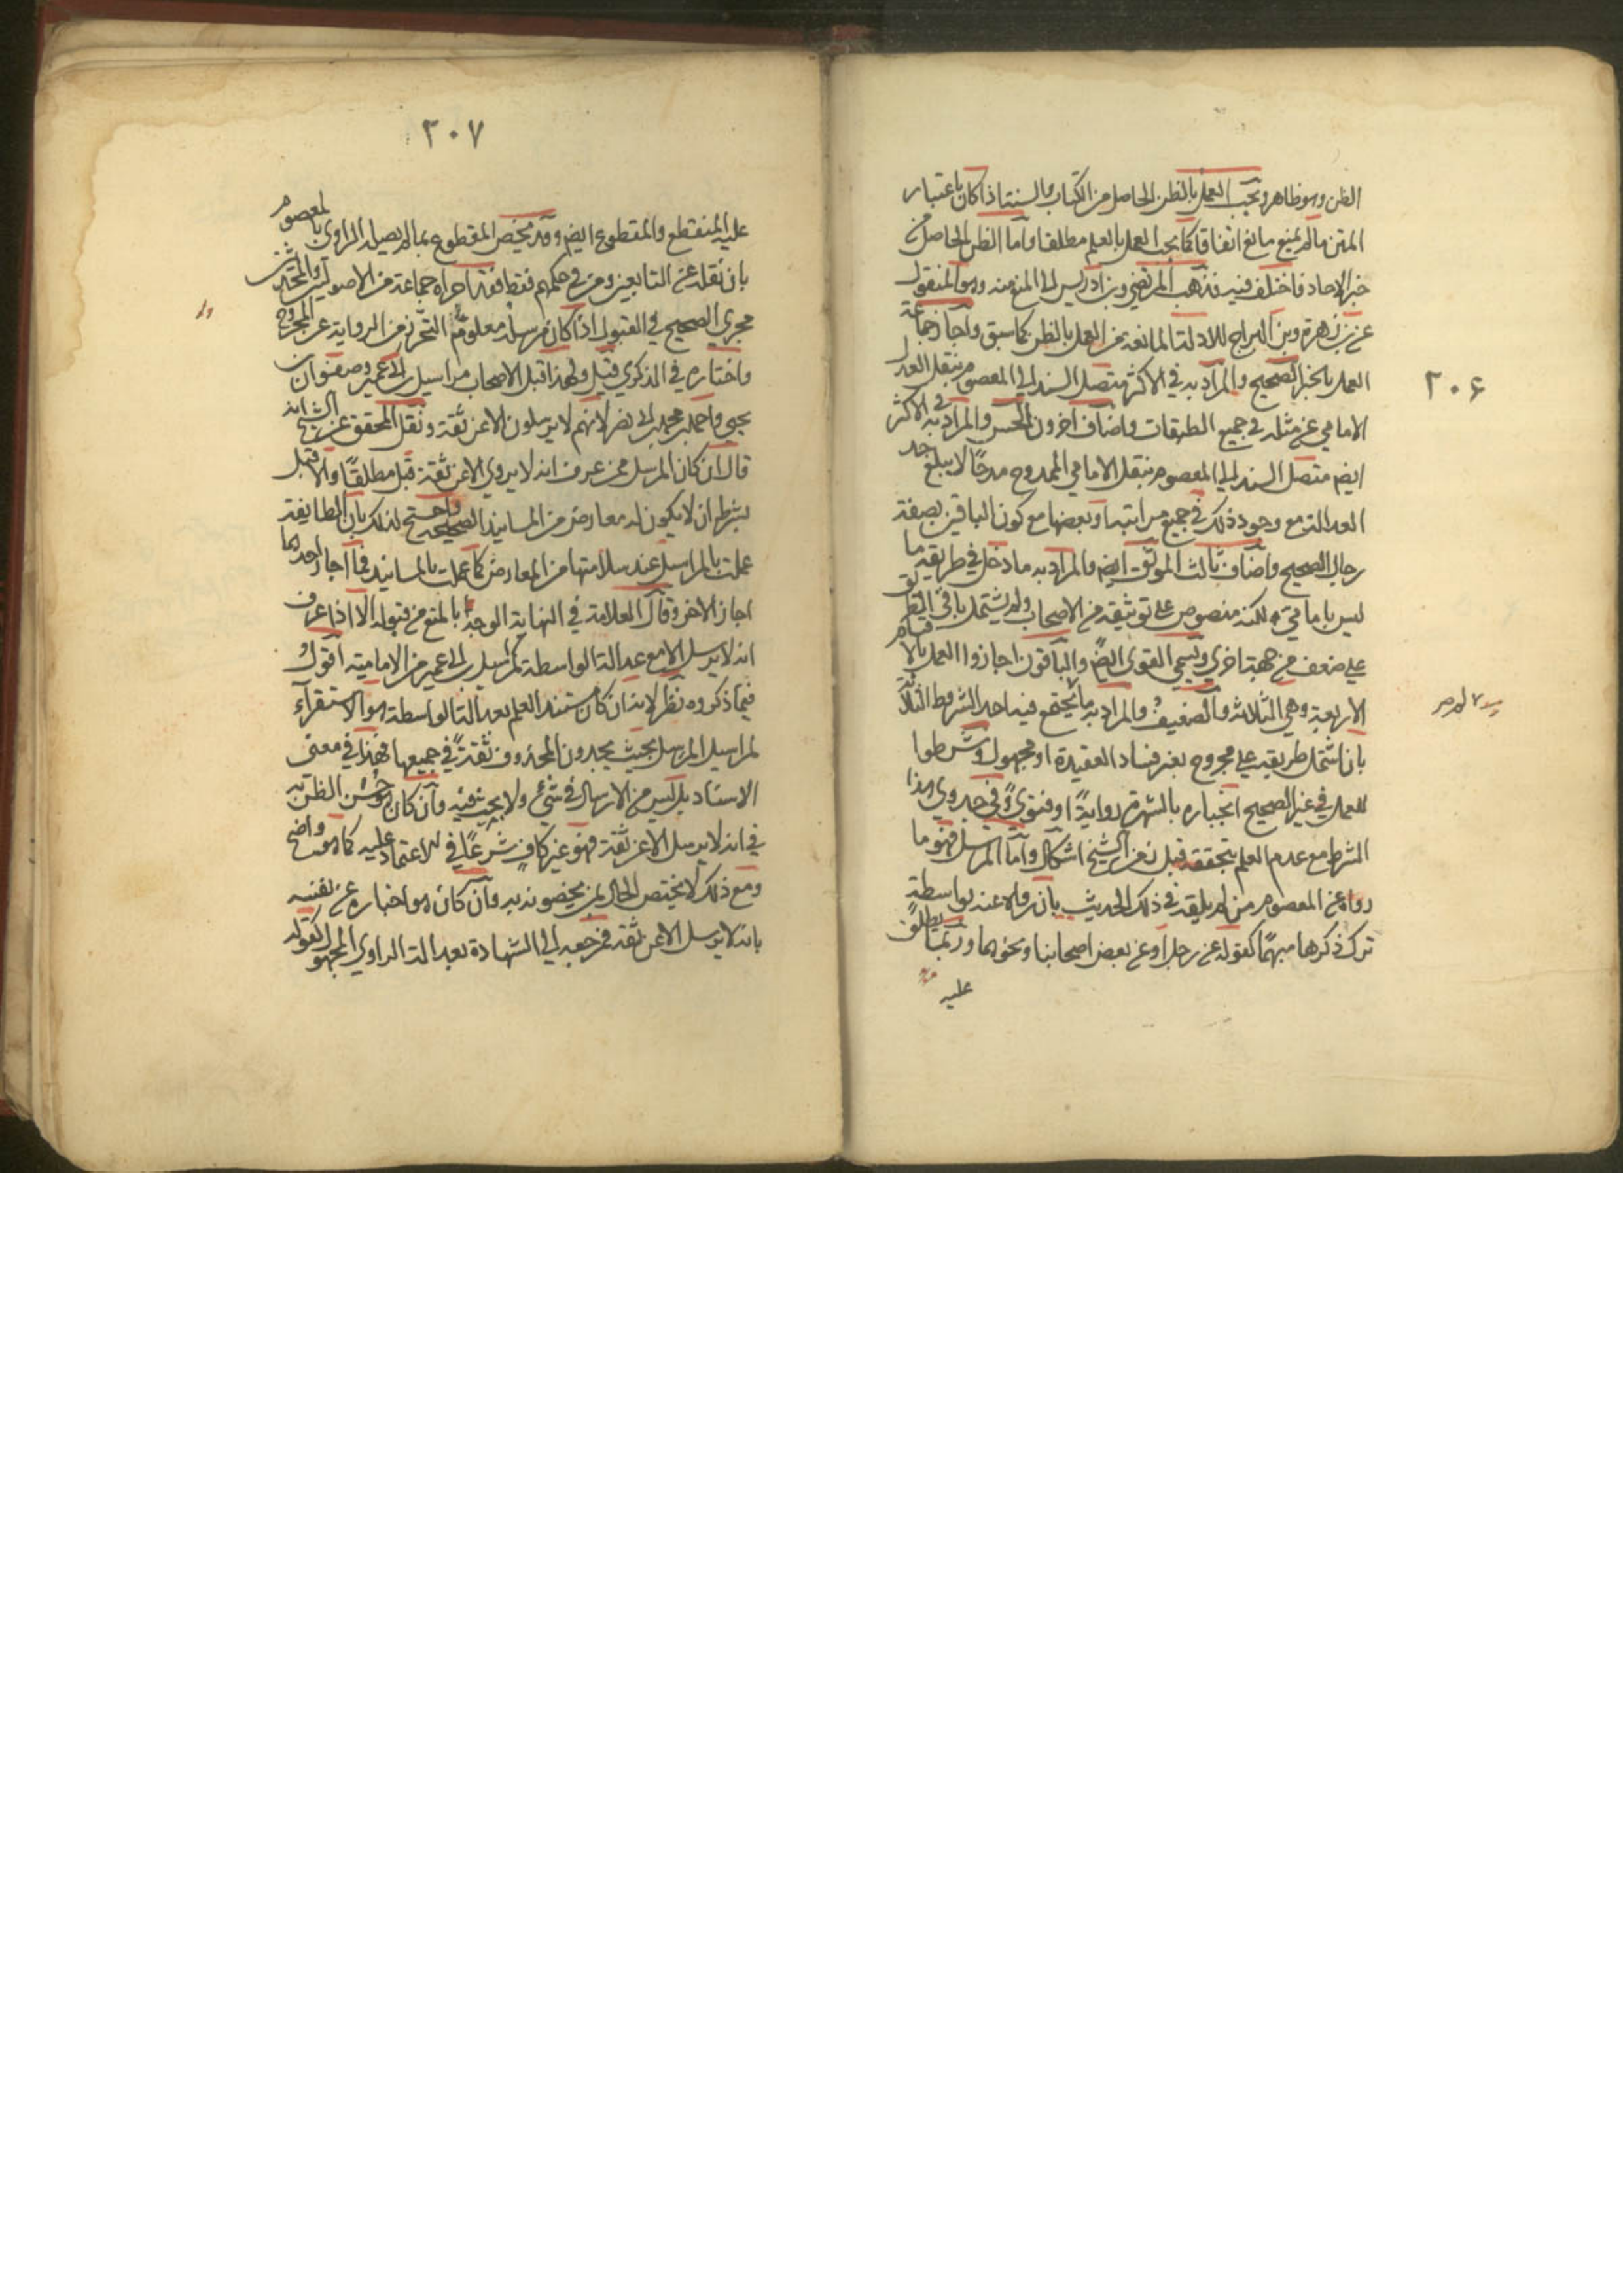 ٢٠٦
الظن وهو ظاهر ويجب العمل بالظن الحاصل من الكتاب والسنة اذا كان باعتبار
المتن مالم يمنع مانع اتفاقا كما يجب العمل بالعلم مطلقا واما الظن الحاصل من
خبر الاحاد فاختلف فيه فذهب المرتضى وبن ادريس الى المنع منه وهو المنقول
عن بن زهرة وبن البراج للادلة المانعة من العمل بالظن كما سبق واجاز جماعة
العمل بالخبر الصحيح والمراد به في الاكثر متصل السند الى المعصوم بنقل العدل
الامامي عن مثله في جميع الطبقات واضاف آخرون الحسن والمراد به في الاكثر
ايضا متصل السند الى المعصوم بنقل الامامي الممدوح مدحًا لا يبلغ حد
العدالة مع وجود ذلك في جميع مراتبه او بعضها مع كون الباقين بصفة
رجال الصحيح واضاف ثالث الموثق ايضا والمراد به ما دخل في طريقه ما
ليس بامامي ولكنه منصوص على توثيقه من الاصحاب ولم يشتمل باقي الطريق
على ضعف من جهة اخرى ويسمى القوى ايضًا والباقون اجازوا العمل بالاقسام
الاربعة وهي الثلاثة والضعيف والمراد به ما لا يجتمع فيه احد الشروط الثلاثة
بان اشتمل طريقه على مجروح بغير فساد العقيدة او مجهول وشرطوا
للعمل في غير الصحيح انجباره بالشهرة روايةً او فتوىً وفي جدوى هذا
الشرط مع عدم العلم بتحققه قبل زمن الشيخ اشكال واما المرسل فهو ما
رواه عن المعصوم من لم يلقه في ذلك الحديث بان رواه عنه بواسطة
ترك ذكرها مبهمًا كقوله عن رجل او عن بعض اصحابنا ونحوهما وربما يطلق
عليه
٢٠٧
عليه المنقطع والمقطوع ايضا وقد يخص المقطوع بما لم يصله الراوي بالمعصوم
بان نقله عن التابعين ومن في حكمهم فقط فقد اجراه جماعة من الاصوليين والمحدثين
مجرى الصحيح في القبول اذا كان مرسله معلوم التحرز من الرواية عن المجروح
واختاره في الذكرى قيل ولهذا قبل الاصحاب مراسيل بن ابي عمير وصفوان بن
يحيى واحمد بن محمد بن ابي نصر لانهم لا يرسلون الا عن ثقة ونقل المحقق عن الشيخ انه
قال ان كان المرسل ممن عرف انه لا يروي الا عن ثقة قبل مطلقًا والا قبل
بشرط ان لا يكون له معارض من المسانيد الصحيحة واحتج لذلك بان الطايفة
عملت بالمراسيل عند سلامتها من المعارض كما عملت بالمسانيد فما اجاز احدهما
اجاز الاخر وقال العلامة في النهاية الوجه بالمنع من قبوله الا اذا عرف
انه لا يرسل الا مع عدالة الواسطة كمراسيل بن ابي عمير من الامامية اقول و
فيما ذكروه نظر لانه ان كان مستند العلم بعدالة الواسطة هو الاستقرآء
لمراسيل المرسل بحيث يجدون المحذوف ثقةً في جميعها فهذا في معنى
الاسناد بل ليس من الارسال في شيء ولا بحث فيه وان كان هو حسن الظن به
في انه لا يرسل الا عن ثقة فهو غير كافٍ شرعًا في الاعتماد عليه كما هو واضح
ومع ذلك لا يختص الحال بمن يخصونه به وان كان هو اخباره عن نفسه
بانه لا يرسل الا عن ثقة فمرجعه الى الشهادة بعدالة الراوي المجهول كقوله